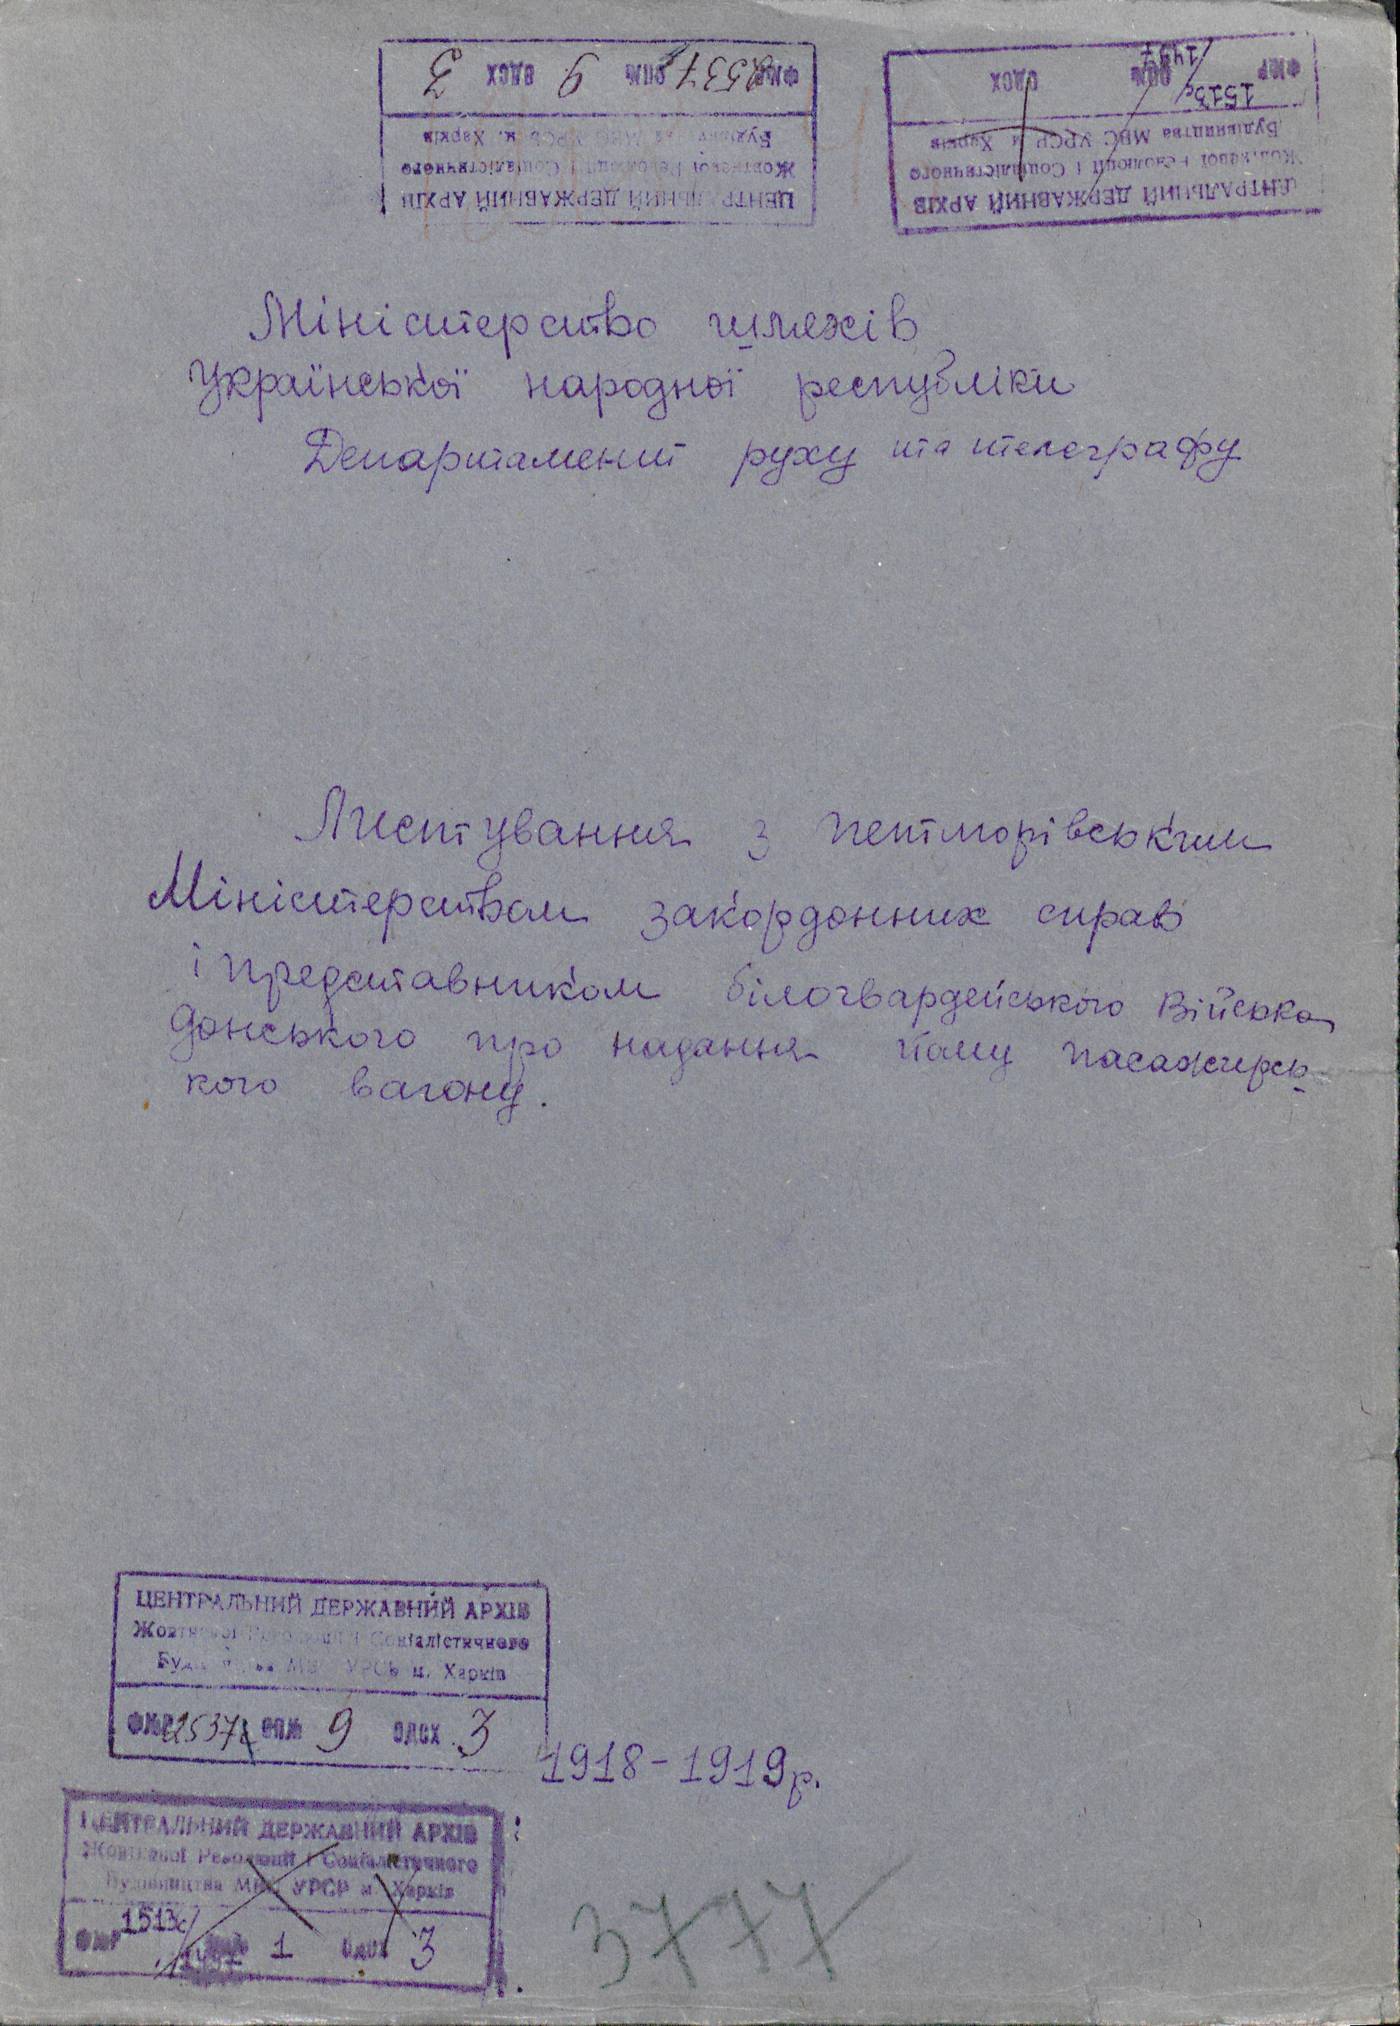 ФМР 2537 ОПМ 9 ОДСХ 3
Будівництва МВС УРСР м. Харків
Жовтневої Революції і Соціалістичного
ЦЕНТРАЛЬНИЙ ДЕРЖАВНИЙ АРХІВ
1513с/1497
ФМР ОПМ ОДСХ 1
Будівництва МВС УРСР м. Харків
Жовтневої Революції і Соціалістичного
ЦЕНТРАЛЬНИЙ ДЕРЖАВНИЙ АРХІВ
Міністерство шляхів
Української народної республіки
Департамент руху та телеграфу
Листування з
Міністерством закордонних справ
і представником білогвардейського Війська
донського про надання йому пасажирсь-
кого вагону.
ЦЕНТРАЛЬНИЙ ДЕРЖАВНИЙ АРХІВ
Жовтневої Революції і Соціалістичного
Будівництва МВС УРСР м. Харків
ФМР 2537 ОПМ 9 ОДСХ 3
1918-1919р.
ЦЕНТРАЛЬНИЙ ДЕРЖАВНИЙ АРХІВ
Жовтневої Революції і Соціалістичного
Будівництва МВС УРСР м. Харків
ФМР 1513с/1497 1 ОДСХ 3
3777